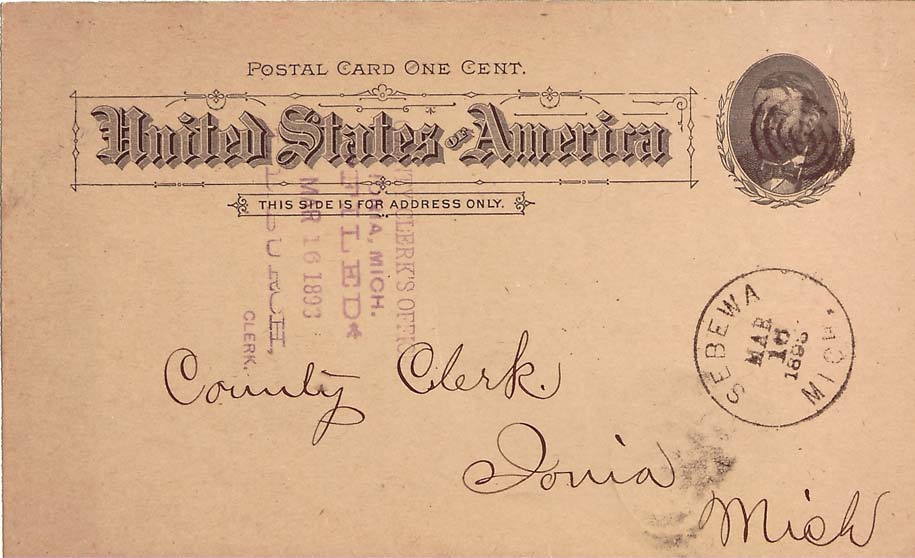 POSTAL CARD ONE CENT.
United States OF America
THIS SIDE IS FOR ADDRESS ONLY.
CLERK'S OFFI
IONIA, MICH.
FILED
MAR 16 1893
CLERK.
SEBEWA
MAR
16
1893
MICH.
County Clerk.
Ionia
Mich